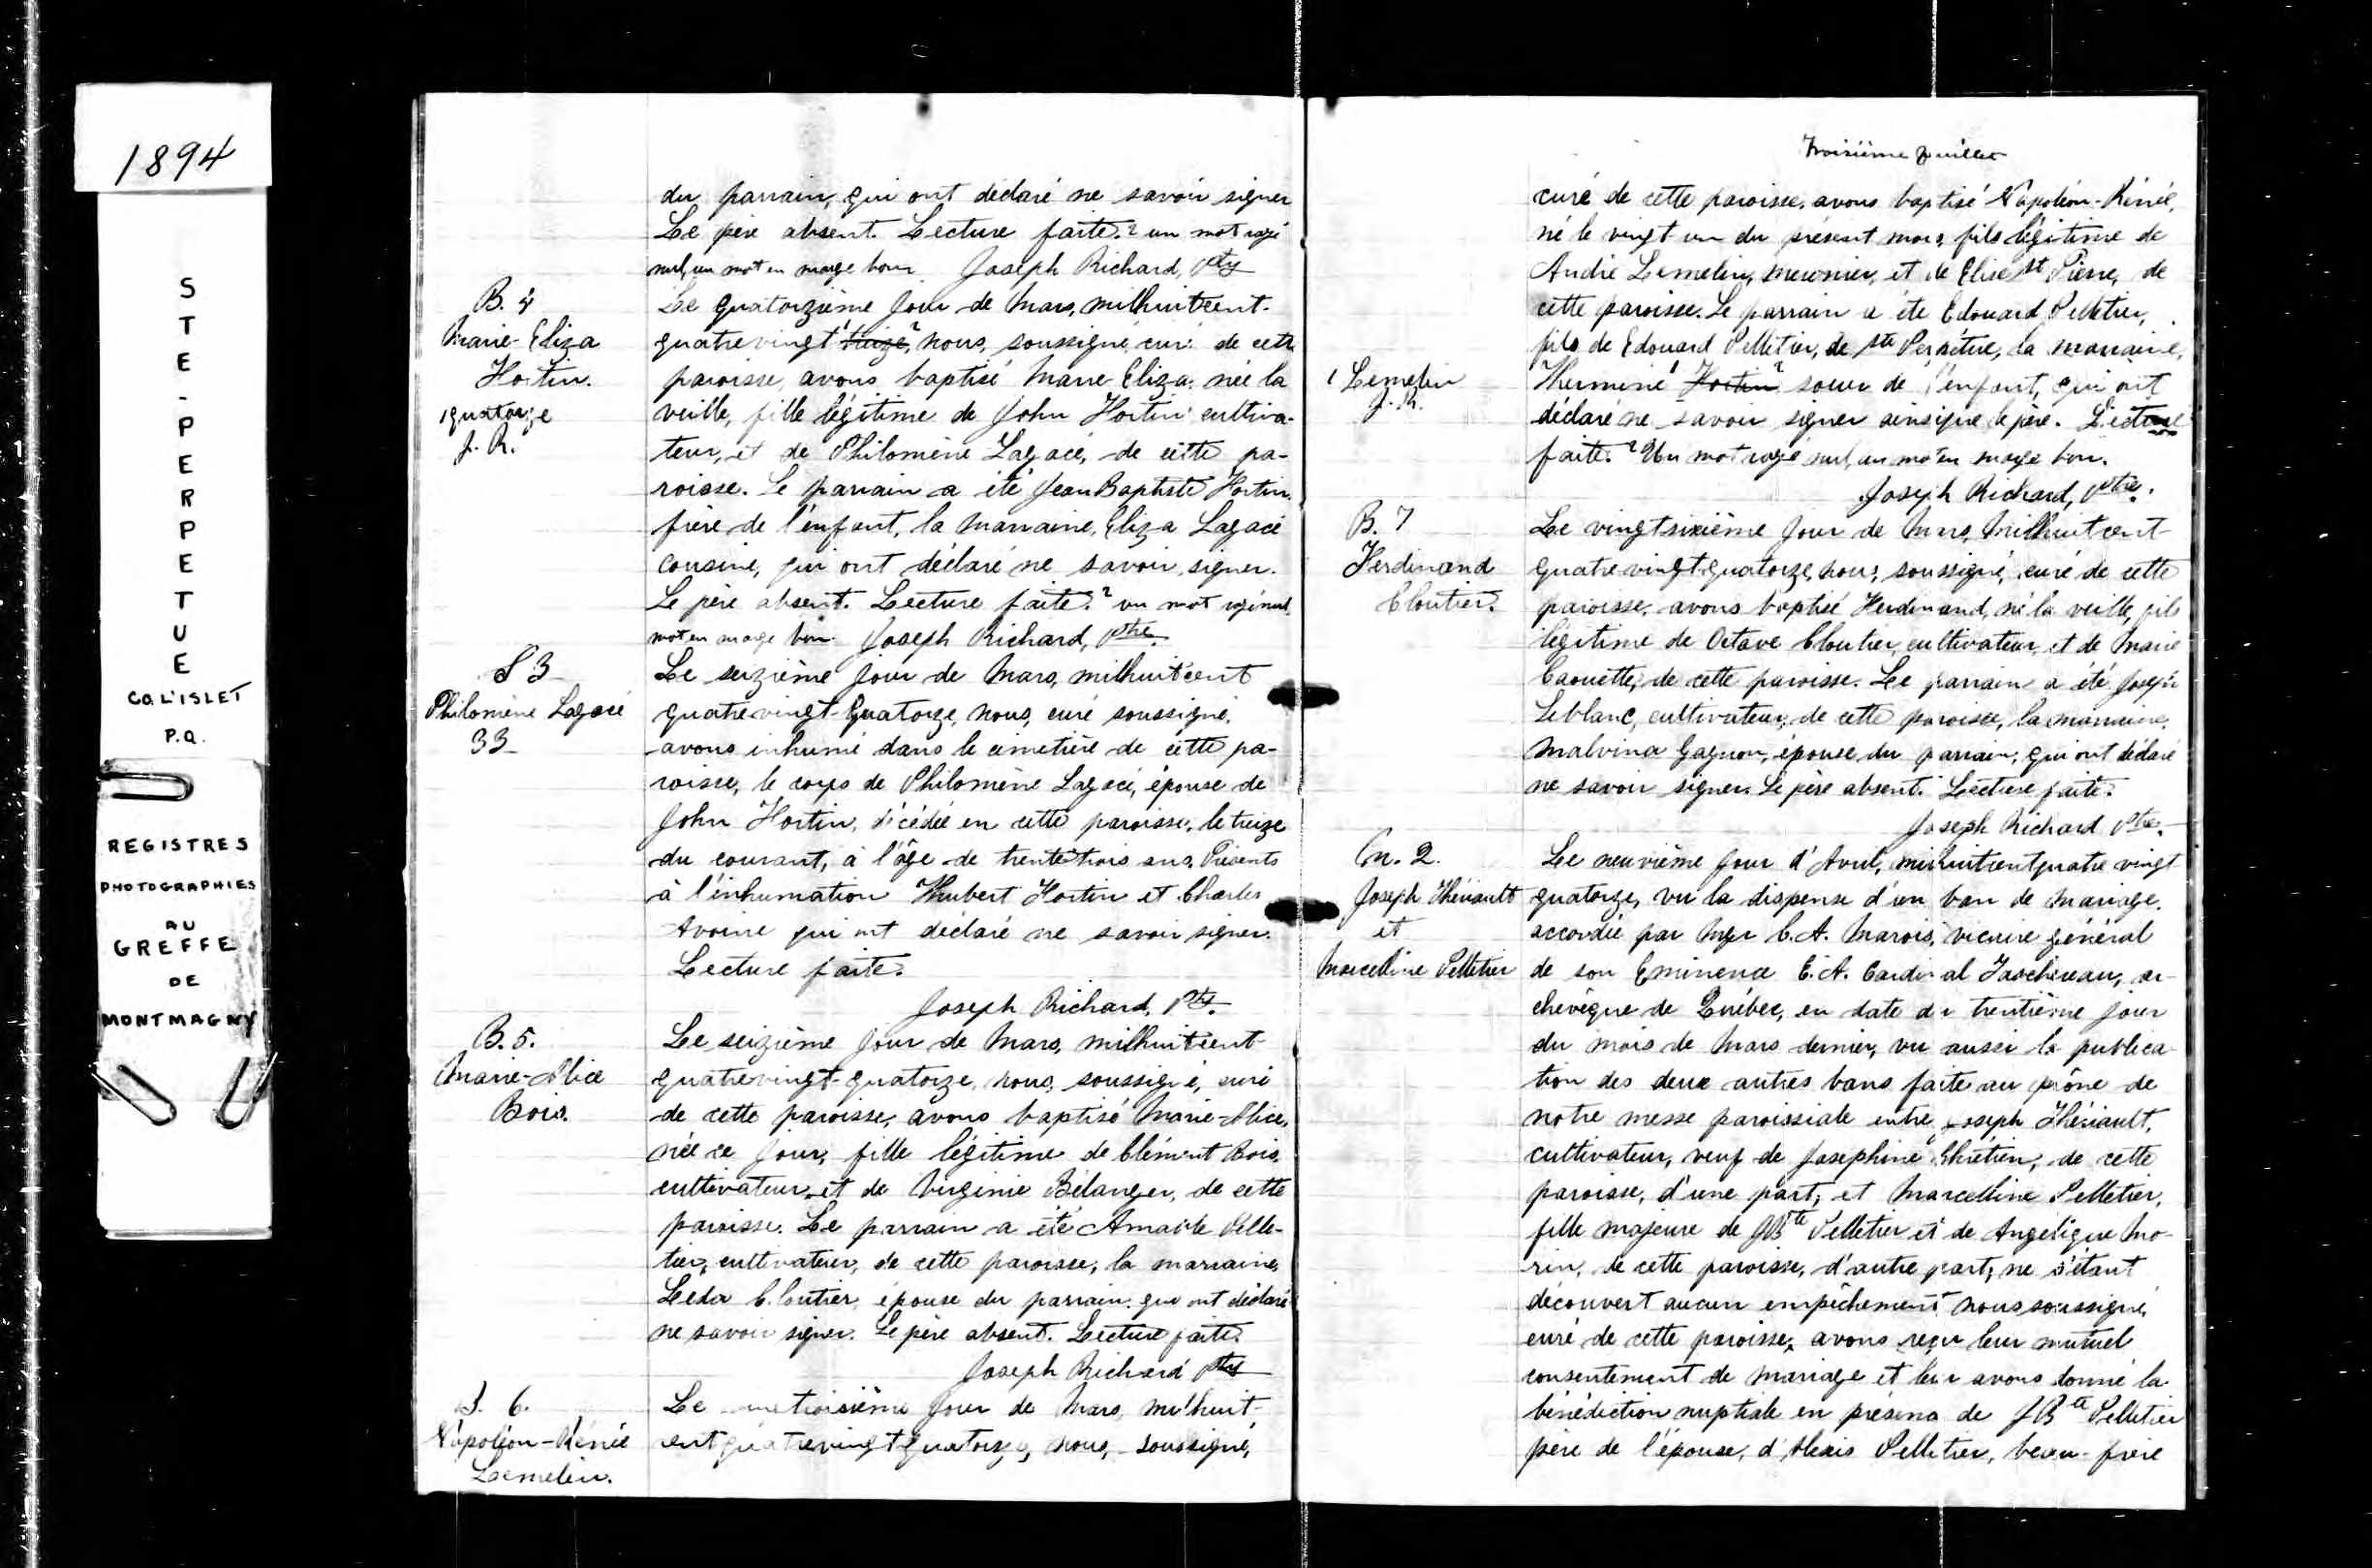 1894
STE-PERPETUE
CO. L'ISLET
P.Q.
REGISTRES
PHOTOGRAPHIES
AU
GREFFE
DE
MONTMAGNY
du parrain, qui ont déclaré ne savoir signer
Le père absent. Lecture faite. 2 un mot rayé
nul, un mot en marge bon Joseph Richard, Ptre
B. 4
Marie-Eliza
Hortin.
1 quatorze
J. R.
Le quatorzième jour de Mars, milhuitcent-
quatrevingt treize, nous, soussigné, curé de cette
paroisse, avons baptisé Marie Eliza, née la
veille, fille légitime de John Hortin cultiva-
teur, et de Philomène Lagacé, de cette pa-
roisse. Le parrain a été Jean Baptiste Hortin,
frère de l'enfant, la marraine, Eliza Lagacé
cousine, qui ont déclaré ne savoir signer.
Le père absent. Lecture faite. 2 un mot rayé nul,
mot en marge bon. Joseph Richard, Ptre
S 3
Philomène Lagacé
33
Le seizième jour de Mars, milhuitcent
quatrevingt-quatorze, nous, curé soussigné,
avons inhumé dans le cimetière de cette pa-
roisse, le corps de Philomène Lagacé, épouse de
John Hortin, décédée en cette paroisse, le treize
du courant, à l'âge de trente trois ans. Présents
à l'inhumation Hubert Hortin et Charles
Avoine qui ont déclaré ne savoir signer.
Lecture faite.
Joseph Richard, Ptre.
B. 5.
Marie-Alice
Bois.
Le seizième jour de Mars, milhuitcent-
quatrevingt-quatorze, nous, soussigné, curé
de cette paroisse, avons baptisé Marie-Alice,
née ce jour, fille légitime de Clément Bois,
cultivateur, et de Virginie Bélanger, de cette
paroisse. Le parrain a été Amable Pelle-
tier, cultivateur, de cette paroisse, la marraine,
Leda Cloutier, épouse du parrain, qui ont déclaré
ne savoir signer. Le père absent. Lecture faite.
Joseph Richard Ptre
B. 6.
Napoléon-Rénée
Lemelin.
Le troisième jour de Mars, milhuit-
cent quatrevingt quatorze, nous, soussigné,
Troisième feuillet
curé de cette paroisse, avons baptisé Napoléon-Rénée,
né le vingt un du présent mois, fils légitime de
André Lemelin, meunier, et de Elise St Pierre, de
cette paroisse. Le parrain a été Edouard Pelletier,
fils de Edouard Pelletier, de Ste Perpétue, la marraine,
1 Lemelin
J. R.
Herminé Hortin soeur de l'enfant, qui ont
déclaré ne savoir signer ainsi que le père. Lecture
faite. 2 Un mot rayé nul, un mot en marge bon.
Joseph Richard, Ptre.
B. 7
Ferdinand
Cloutier.
Le vingtsixième jour de Mars, milhuitcent-
quatrevingt quatorze, nous, soussigné, curé de cette
paroisse, avons baptisé Ferdinand, né la veille, fils
légitime de Octave Cloutier, cultivateur, et de Marie
Caouette, de cette paroisse. Le parrain a été Joseph
Leblanc, cultivateur, de cette paroisse, la marraine,
Malvina Gagnon, épouse du parrain, qui ont déclaré
ne savoir signer. Le père absent. Lecture faite.
Joseph Richard Ptre.
M. 2.
Joseph Thériault
et
Marcelline Pelletier
Le neuvième jour d'Avril, milhuitcentquatre vingt
quatorze, vu la dispense d'un ban de mariage,
accordée par Mgr C. A. Marois, vicaire général
de son Eminence E. A. Cardinal Taschereau, ar-
chevêque de Québec, en date du trentième jour
du mois de Mars dernier, vu aussi la publica-
tion des deux autres bans faite au prône de
notre messe paroissiale entre Joseph Thériault,
cultivateur, veuf de Josephine Chrétien, de cette
paroisse, d'une part; et Marcelline Pelletier,
fille majeure de JBte Pelletier et de Angelique Mo-
rin, de cette paroisse, d'autre part; ne s'étant
découvert aucun empêchement nous soussigné,
curé de cette paroisse, avons reçu leur mutuel
consentement de mariage et leur avons donné la
bénédiction nuptiale en présence de JBte Pelletier
père de l'épouse, d'Alexis Pelletier, beau-frère